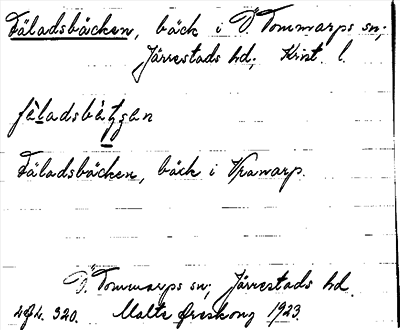 Fäladsbäcken, bäck i Ö. Tommarps sn;
Järrestads hd; Krist. l.
fäladsbätgan
Fäladsbäcken, bäck i Vranarp.
Ö. Tommarps sn; Järrestads hd.
320. Malte 1923.